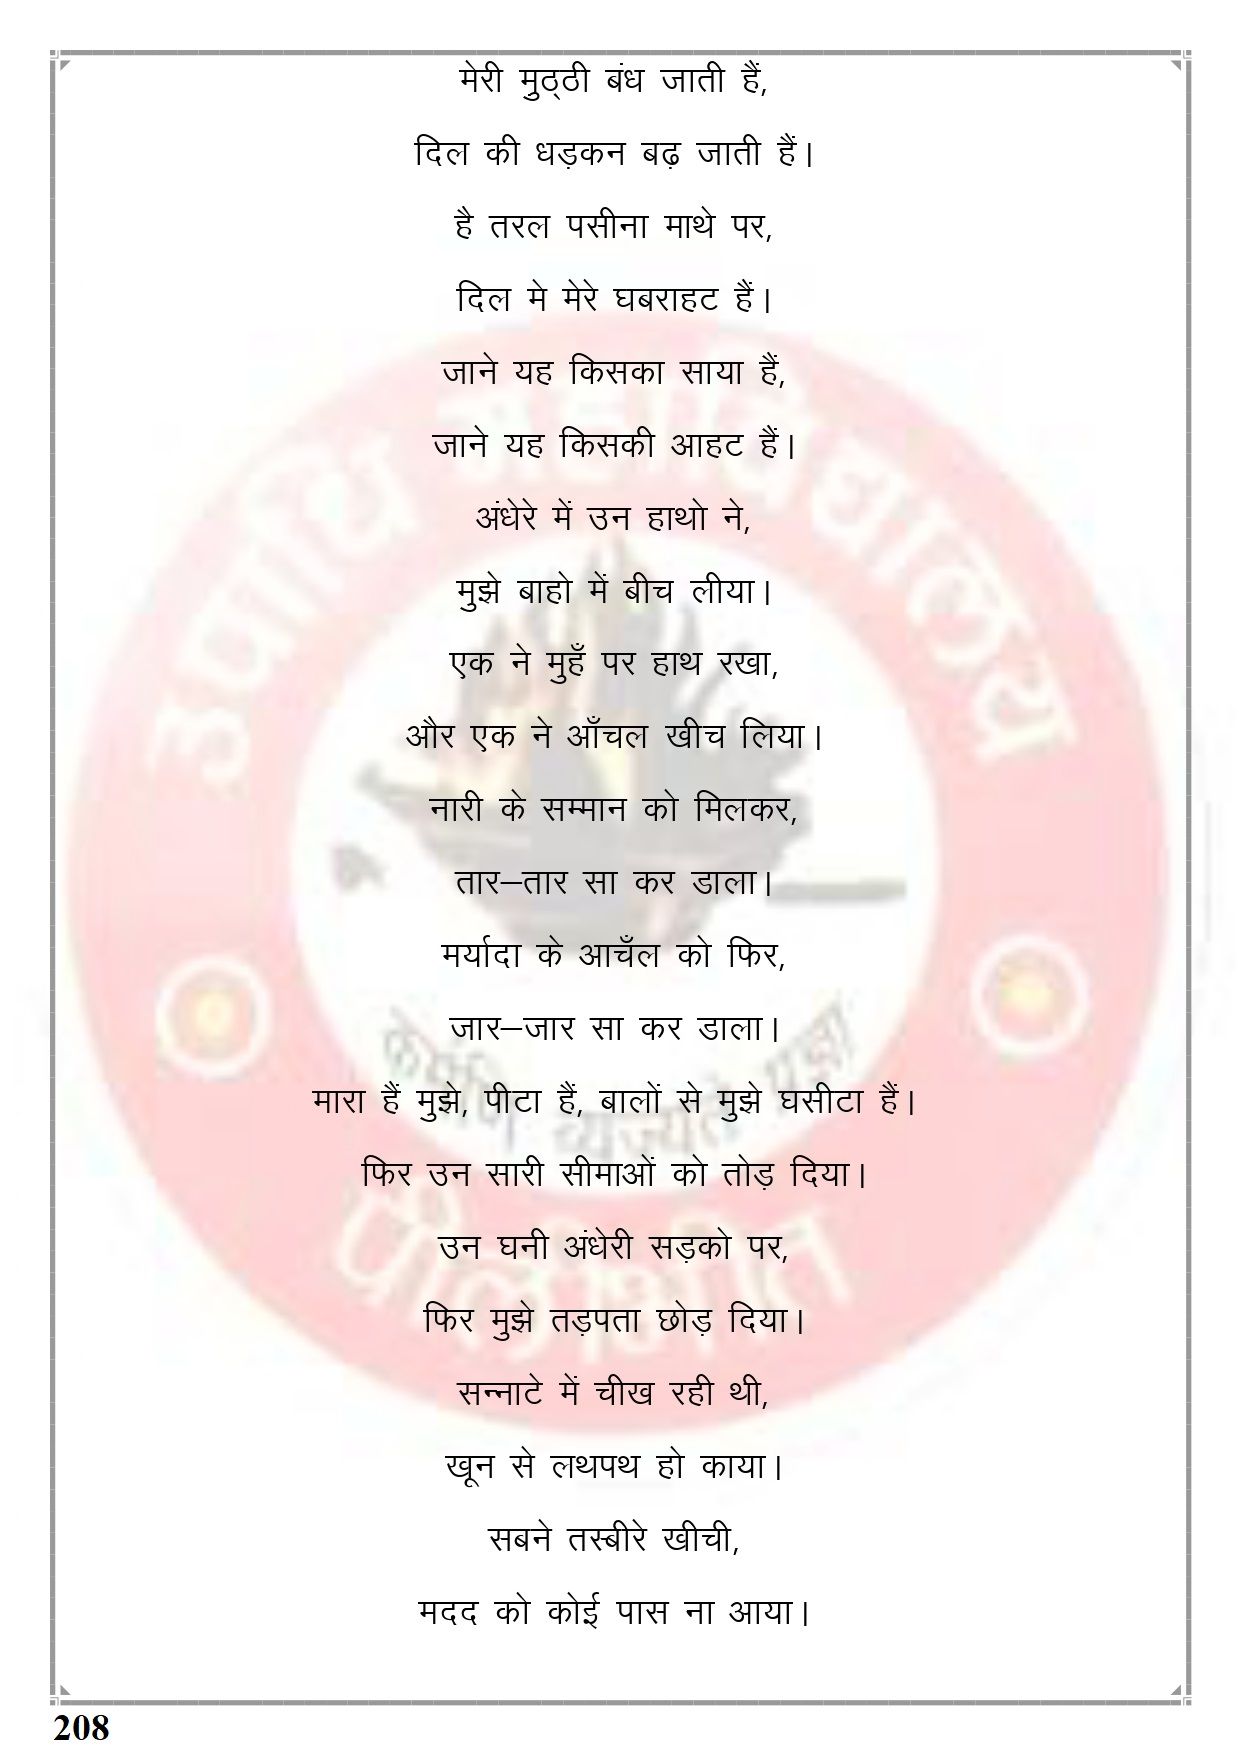 मेरी मुठ्ठी बंध जाती हैं,
दिल की धड़कन बढ़ जाती हैं।
है तरल पसीना माथे पर,
दिल मे मेरे घबराहट हैं।
जाने यह किसका साया हैं,
जाने यह किसकी आहट हैं।
अंधेरे में उन हाथो ने,
मुझे बाहो में बीच लीया।
एक ने मुहँ पर हाथ रखा,
और एक ने आँचल खीच लिया।
नारी के सम्मान को मिलकर,
तार–तार सा कर डाला।
मर्यादा के आचँल को फिर,
जार–जार सा कर डाला।
मारा हैं मुझे, पीटा हैं, बालों से मुझे घसीटा हैं।
फिर उन सारी सीमाओं को तोड़ दिया।
उन घनी अंधेरी सड़को पर,
फिर मुझे तड़पता छोड़ दिया।
सन्नाटे में चीख रही थी,
खून से लथपथ हो काया।
सबने तस्बीरे खीची,
मदद को कोई पास ना आया।
उपाधि महाविद्यालय
कर्मणि व्यज्यते प्रज्ञा
पीलीभीत
208